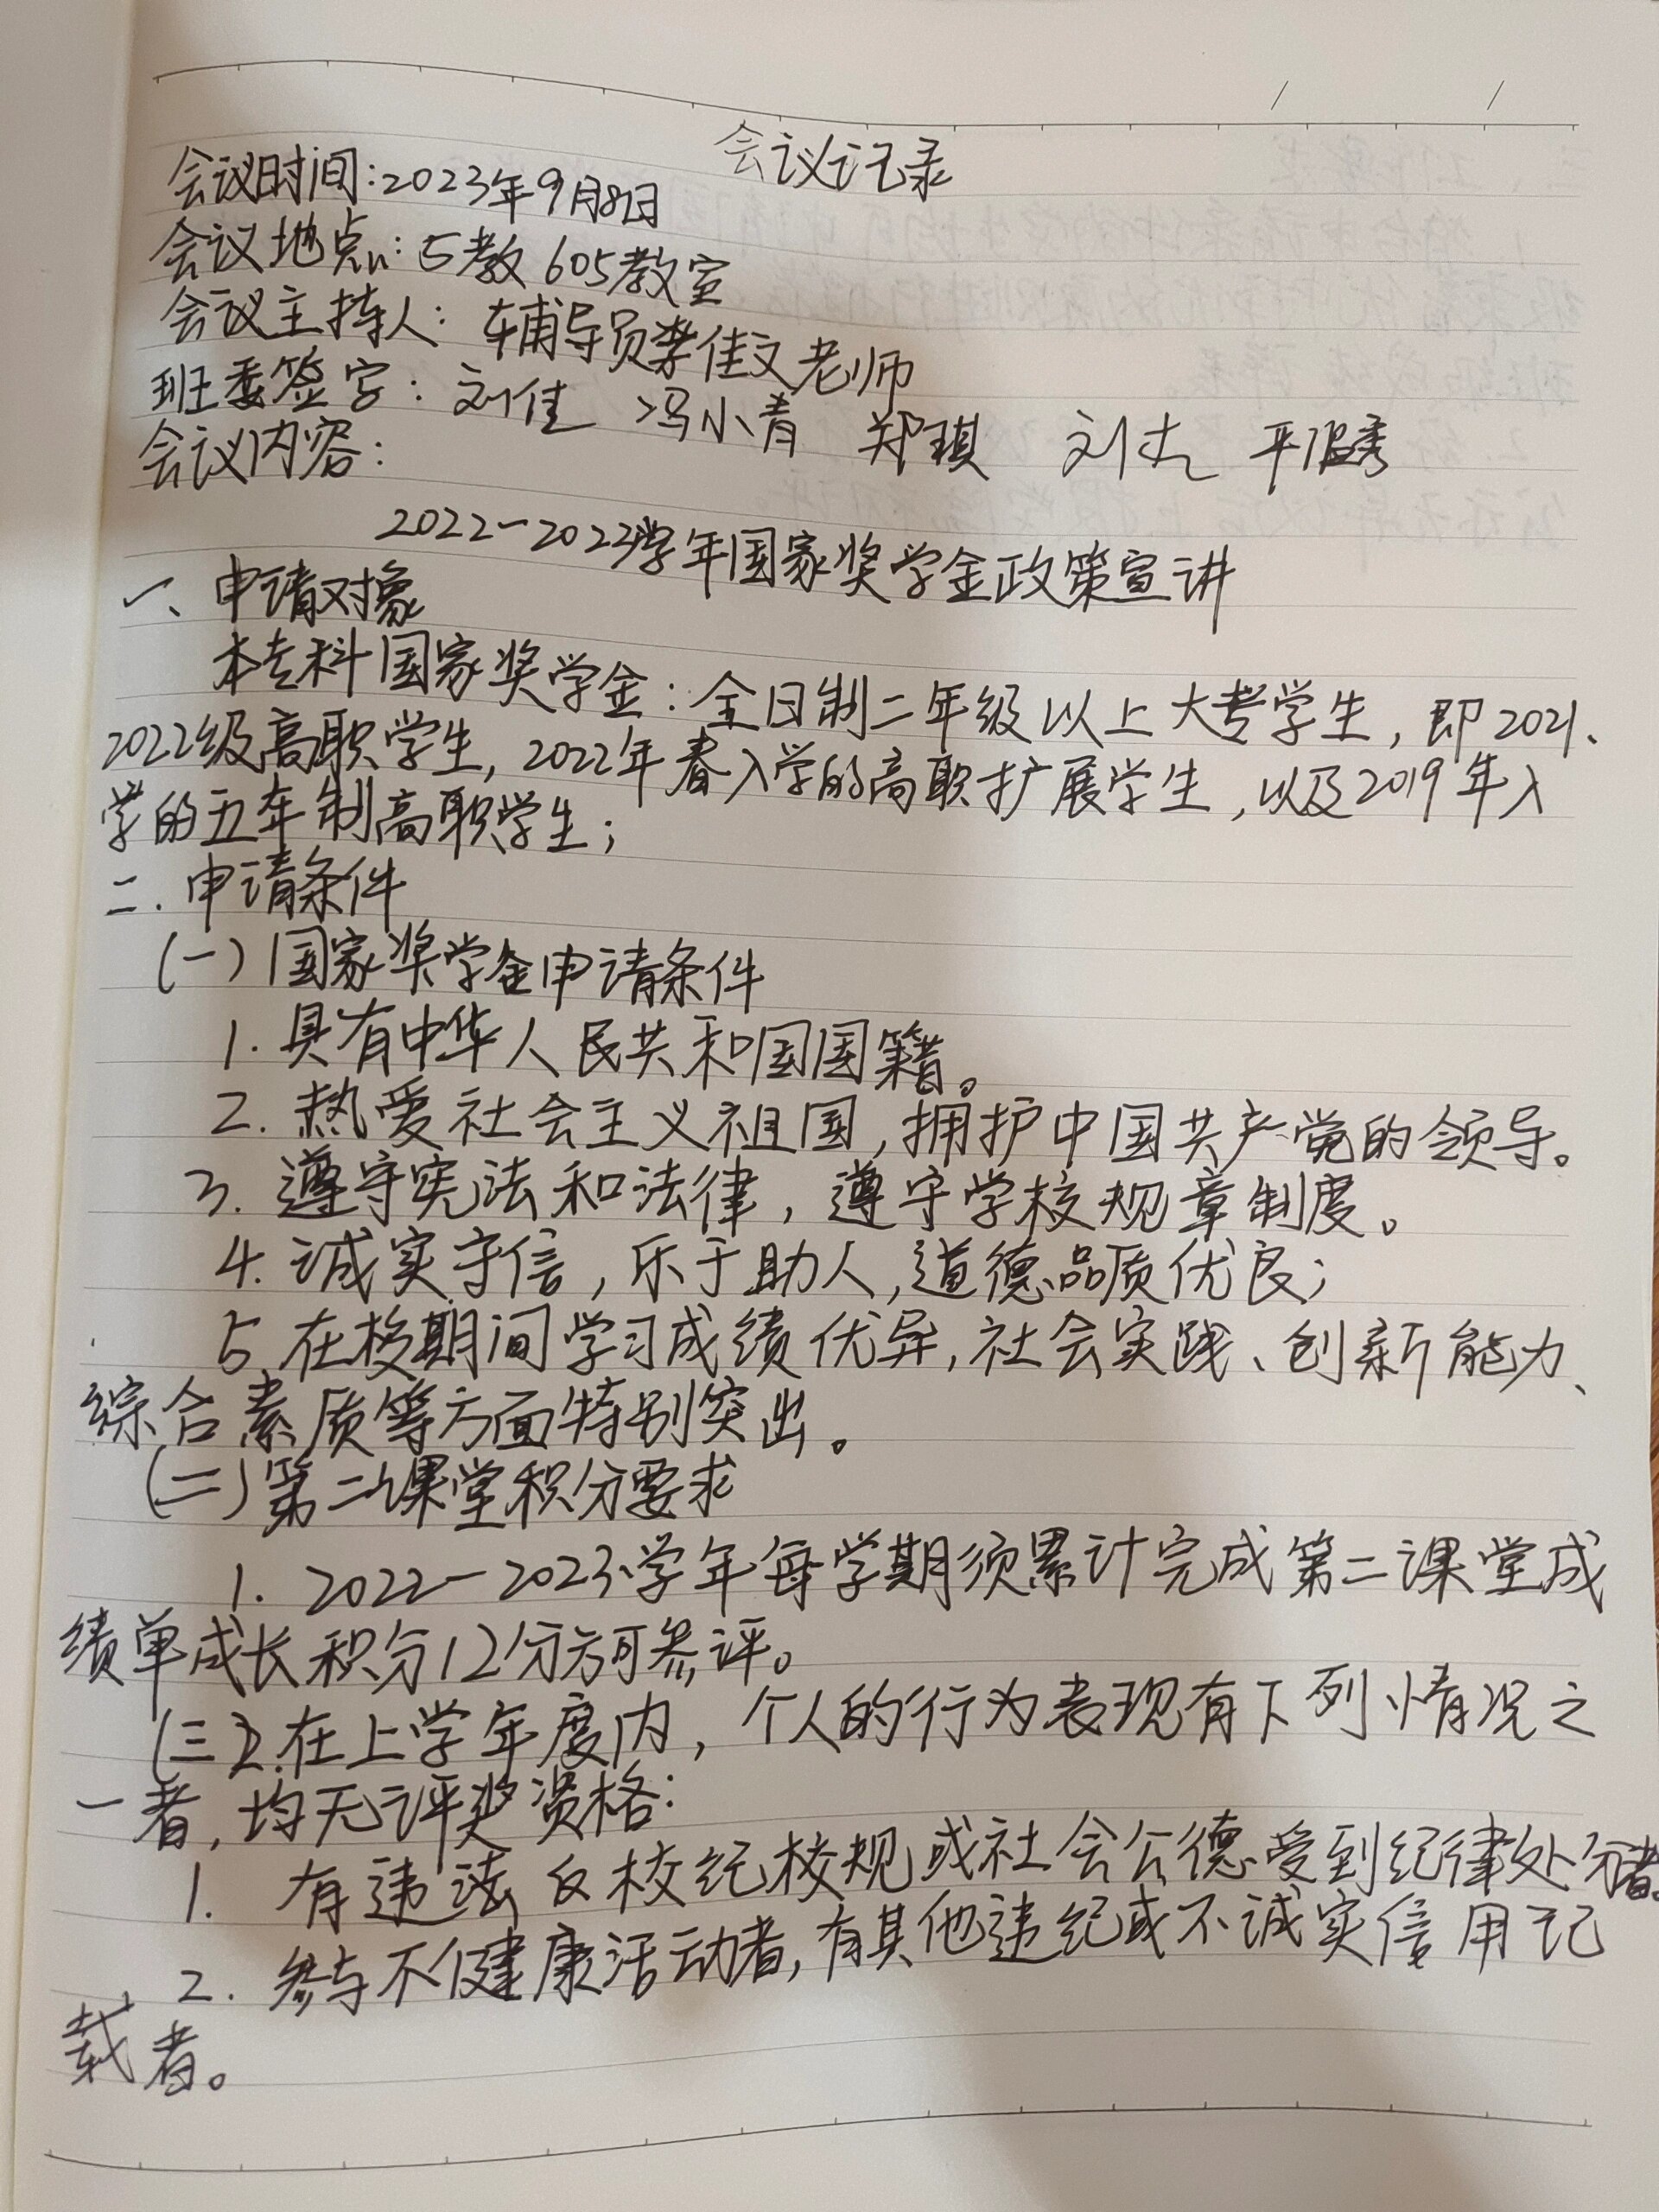 会议记录
会议时间:2023年9月8日
会议地点:5教605教室
会议主持人:辅导员李佳文老师
班委签字:刘佳 冯小青 郑琪 刘杰
会议内容:
2022-2023学年国家奖学金政策宣讲
一、申请对象
本专科国家奖学金:全日制二年级以上大专学生,即2021、
2022级高职学生,2022年春入学的高职扩展学生,以及2019年入
学的五年制高职学生;
二.申请条件
(一)国家奖学金申请条件
1.具有中华人民共和国国籍。
2.热爱社会主义祖国,拥护中国共产党的领导。
3.遵守宪法和法律,遵守学校规章制度。
4.诚实守信,乐于助人,道德品质优良;
5.在校期间学习成绩优异,社会实践、创新能力、
综合素质等方面特别突出。
(二)第二课堂积分要求
1. 2022-2023学年每学期须累计完成第二课堂成
绩单成长积分12分方可参评。
(三)2.在上学年度内,个人的行为表现有下列情况之
一者,均无评奖资格:
1. 有违法反校纪校规或社会公德受到纪律处分者。
2.参与不健康活动者,有其他违纪或不诚实信用记
载者。